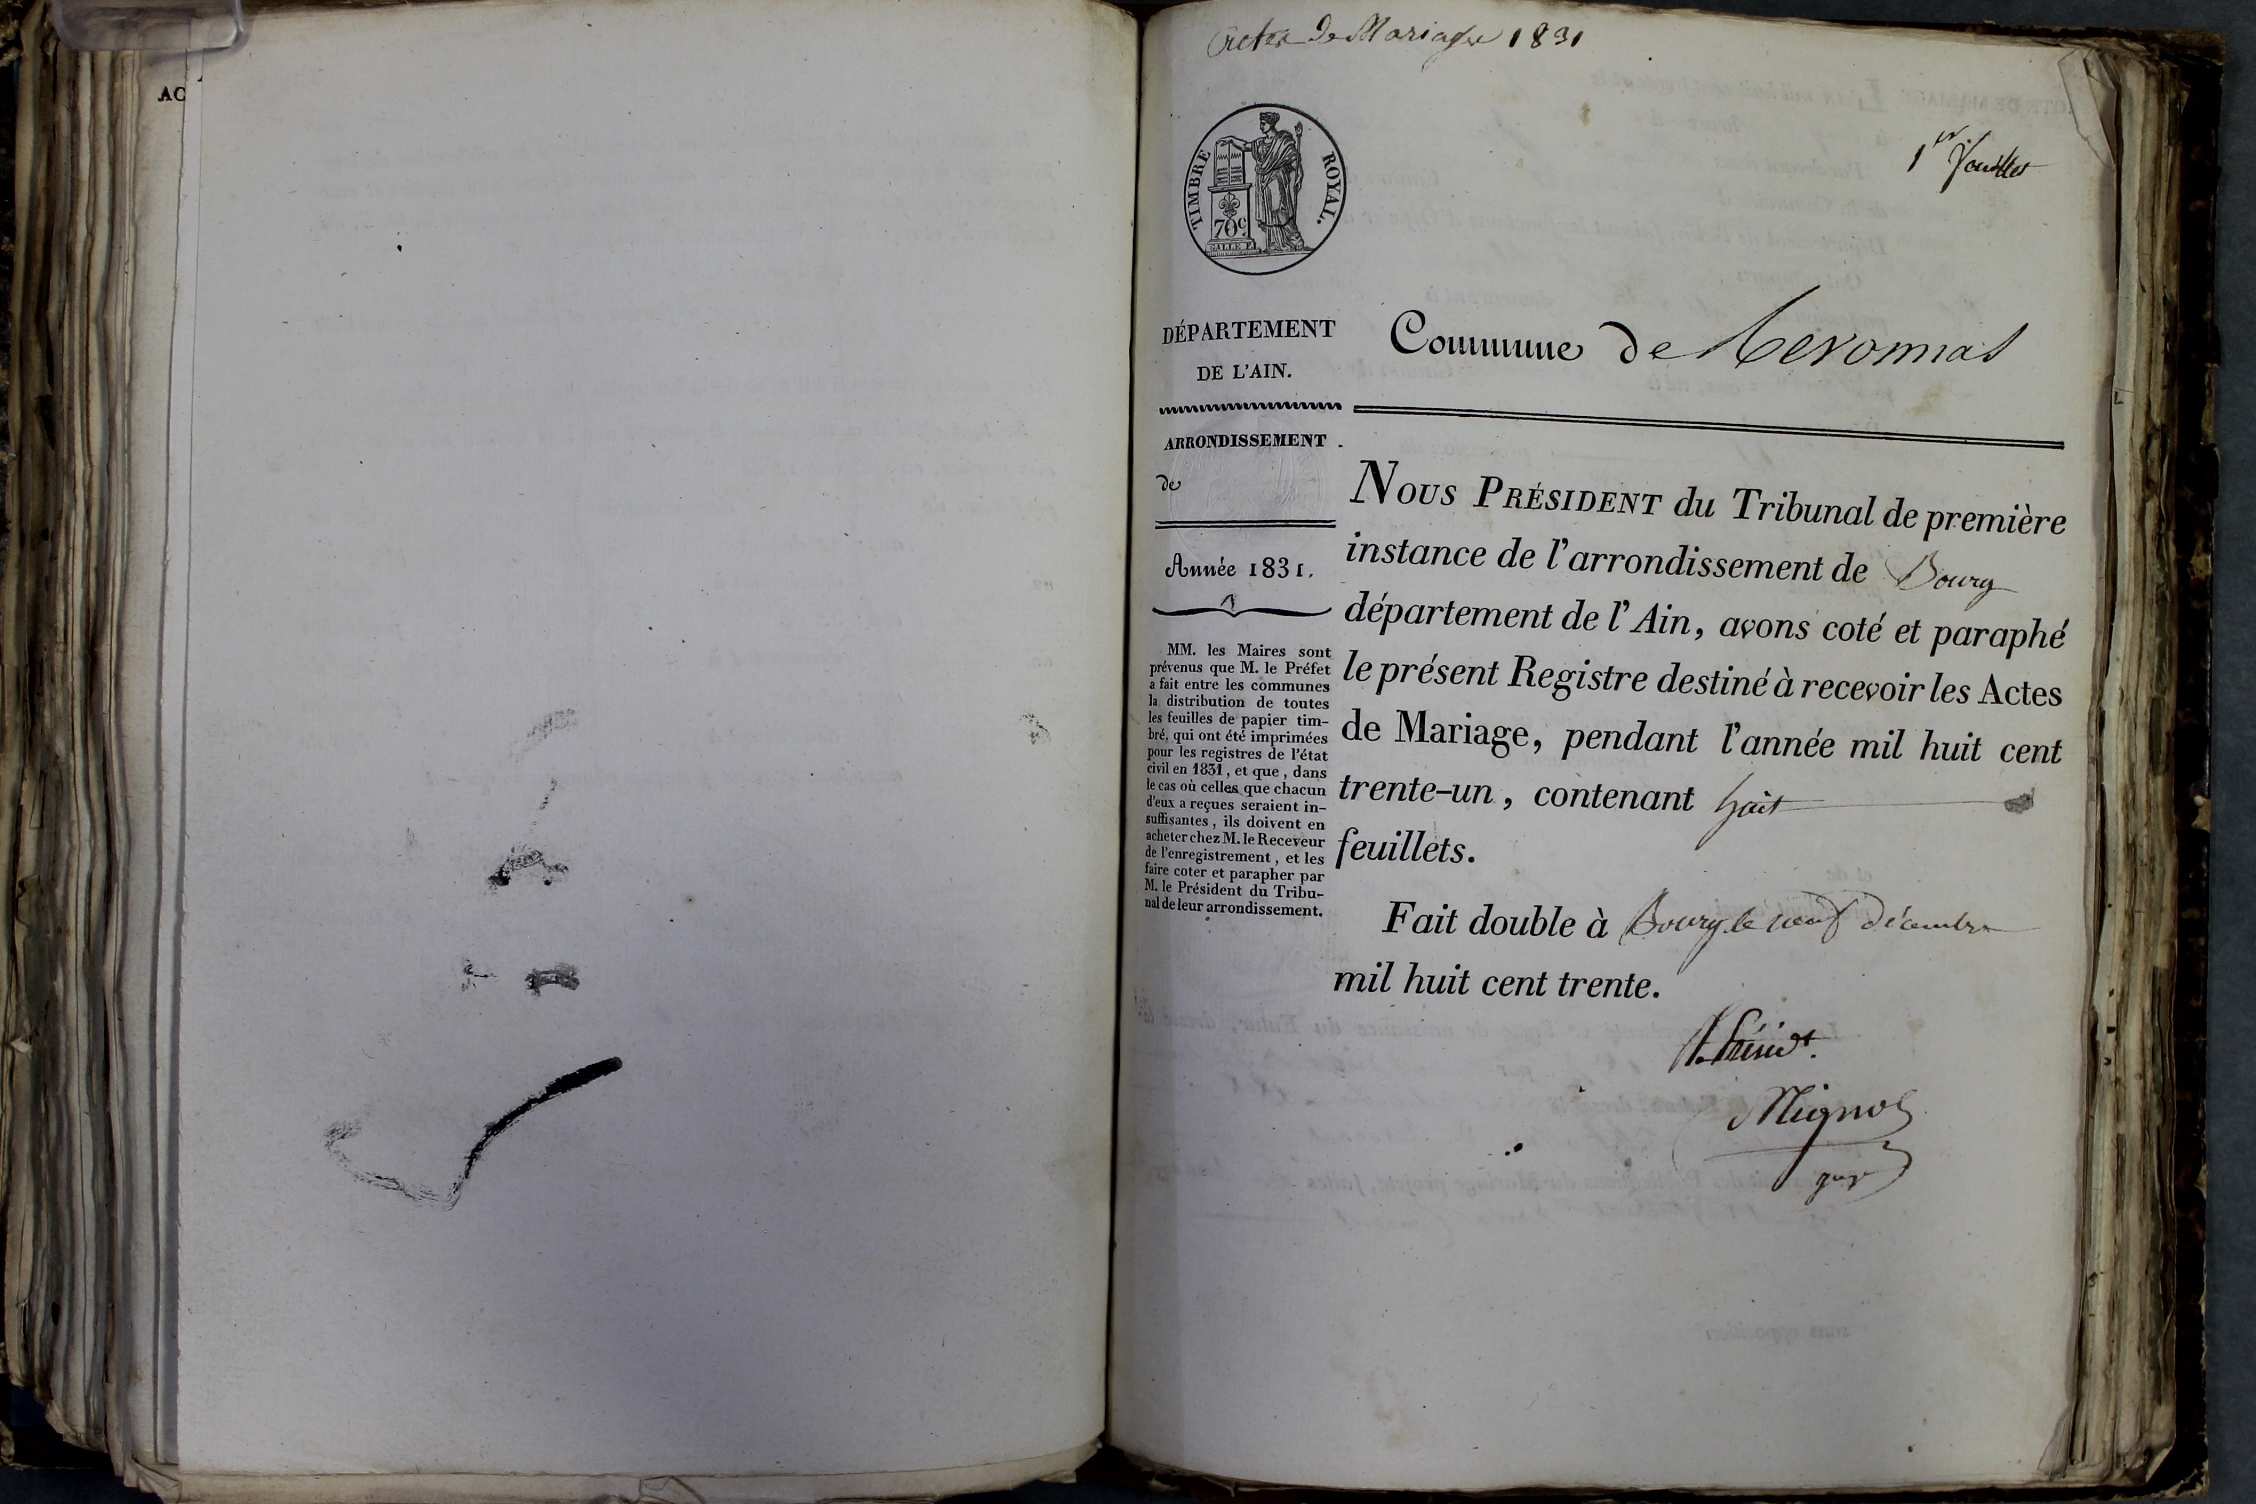 AC
Actes de Mariage 1831
1er feuillet
TIMBRE ROYAL.
70c
DÉPARTEMENT
DE L'AIN.
Commune de
ARRONDISSEMENT
de
Année 1831.
MM. les Maires sont
prévenus que M. le Préfet
a fait entre les communes
la distribution de toutes
les feuilles de papier tim-
bré, qui ont été imprimées
pour les registres de l'état
civil en 1831, et que, dans
le cas où celles que chacun
d'eux a reçues seraient in-
suffisantes, ils doivent en
acheter chez M. le Receveur
de l'enregistrement, et les
faire coter et parapher par
M. le Président du Tribu-
nal de leur arrondissement.
NOUS PRÉSIDENT du Tribunal de première
instance de l'arrondissement de Bourg
département de l'Ain, avons coté et paraphé
le présent Registre destiné à recevoir les Actes
de Mariage, pendant l'année mil huit cent
trente-un, contenant huit
feuillets.
Fait double à Bourg le neuf décembre
mil huit cent trente.